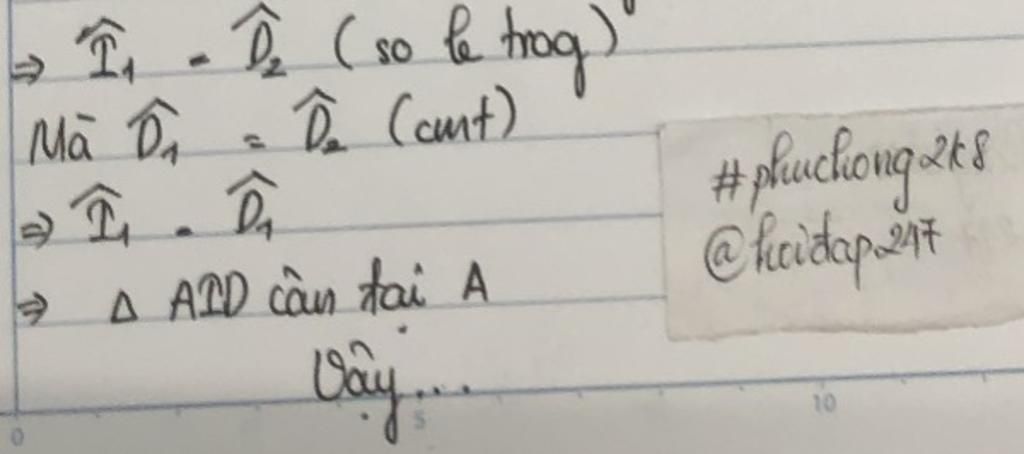 ⇒ Î₁ = D̂₂ (so le trog)
Mà D̂₁ = D̂₂ (cmt)
⇒ Î₁ = D̂₁
⇒ Δ AID cân tại A
Vậy...
#phuchong2k8
@hoidap247
0 5 10